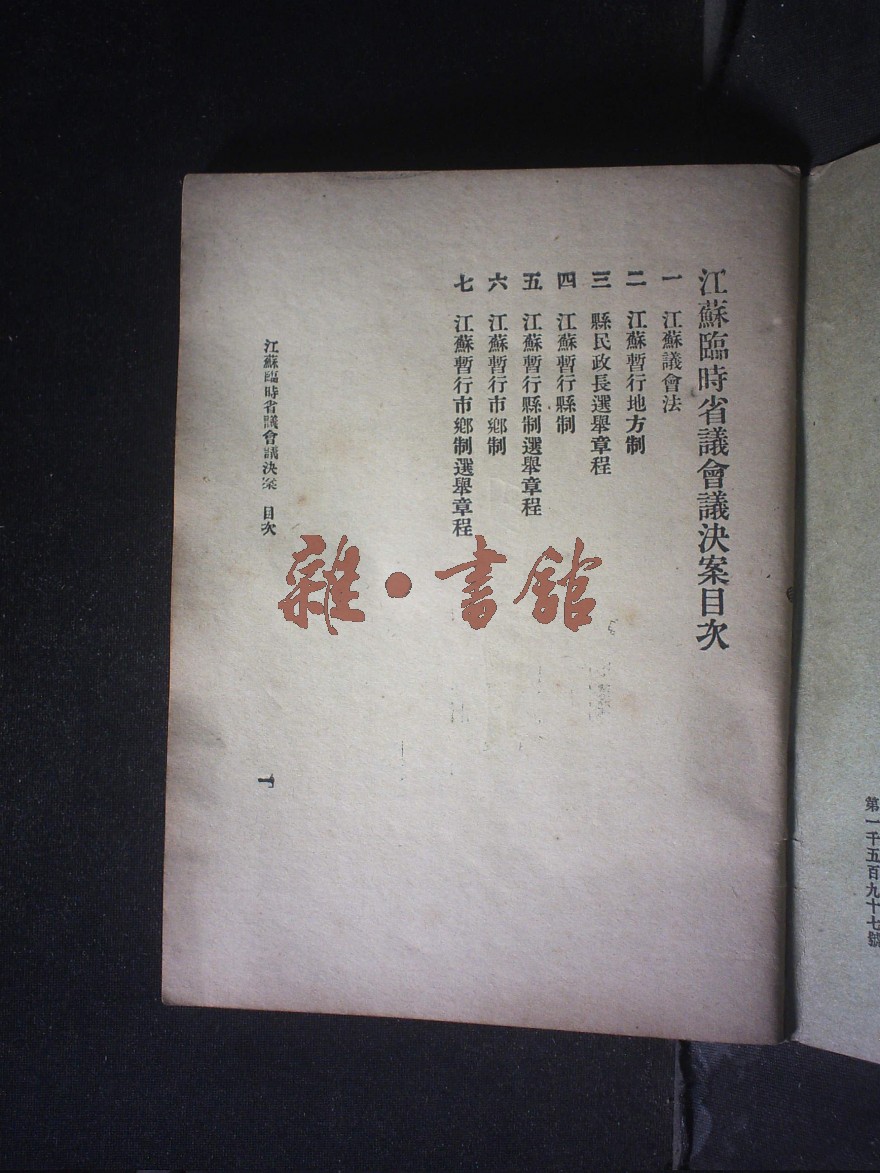 第一千五百九十七號
江蘇臨時省議會議決案目次
一　江蘇議會法
二　江蘇暫行地方制
三　縣民政長選舉章程
四　江蘇暫行縣制
五　江蘇暫行縣制選舉章程
六　江蘇暫行市鄉制
七　江蘇暫行市鄉制選舉章程
江蘇臨時省議會議決案　目次
一
雜·書館